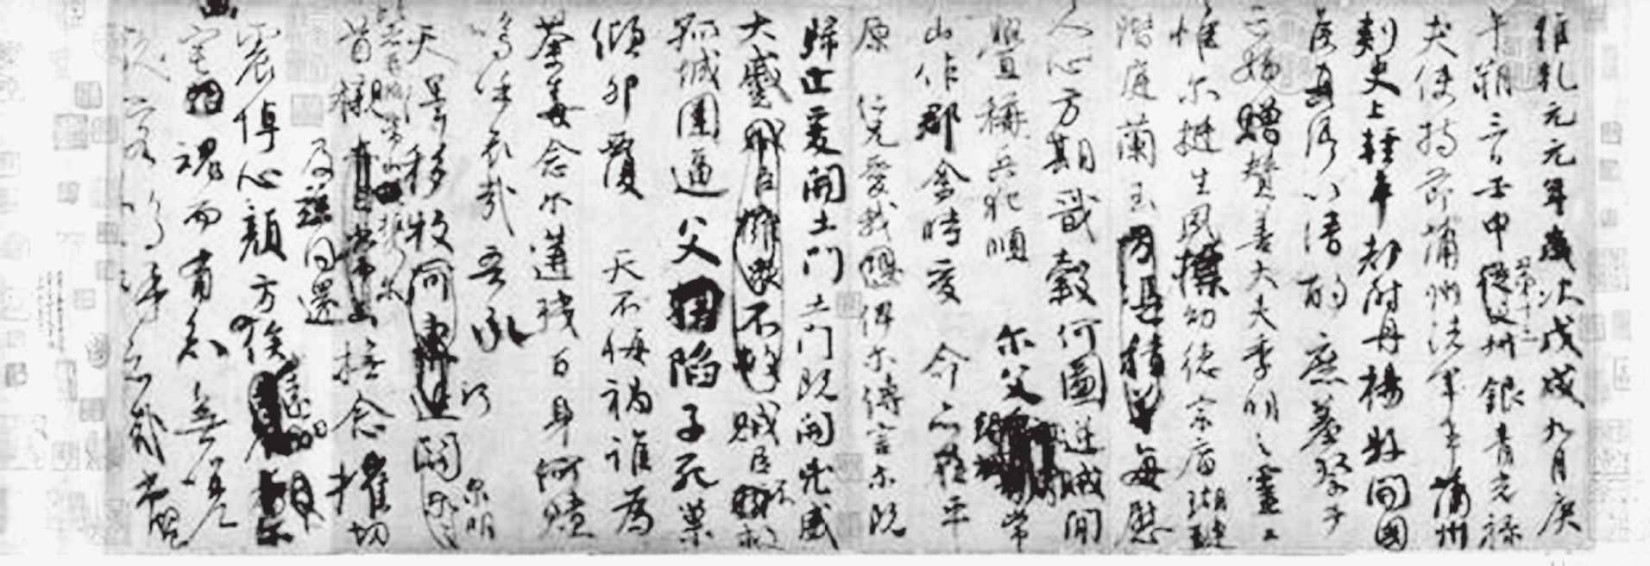 維乾元元年歲次戊戌九月庚
午朔三日壬申第十三叔銀青光祿
夫使持節蒲州諸軍事蒲州
刺史上輕車都尉丹楊縣開國
侯真卿以清酌庶羞祭于
亡姪贈贊善大夫季明之靈曰
惟爾挺生夙標幼德宗廟瑚璉
階庭蘭玉每慰
人心方期戩穀何圖逆賊閒
釁稱兵犯順爾父竭誠常
山作郡余時受命亦在平
原仁兄愛我俾爾傳言爾既
歸止爰開土門土門既開兇威
大蹙賊臣不救
孤城圍逼父陷子死巢
傾卵覆天不悔禍誰為
荼毒念爾遘殘百身何贖
嗚呼哀哉吾承
天澤移牧河關泉明
比者再陷常山攜爾
首櫬及茲同還撫念摧切
震悼心顏方俟遠日卜爾
宅魂而有知無嗟
久客嗚呼哀哉尚饗